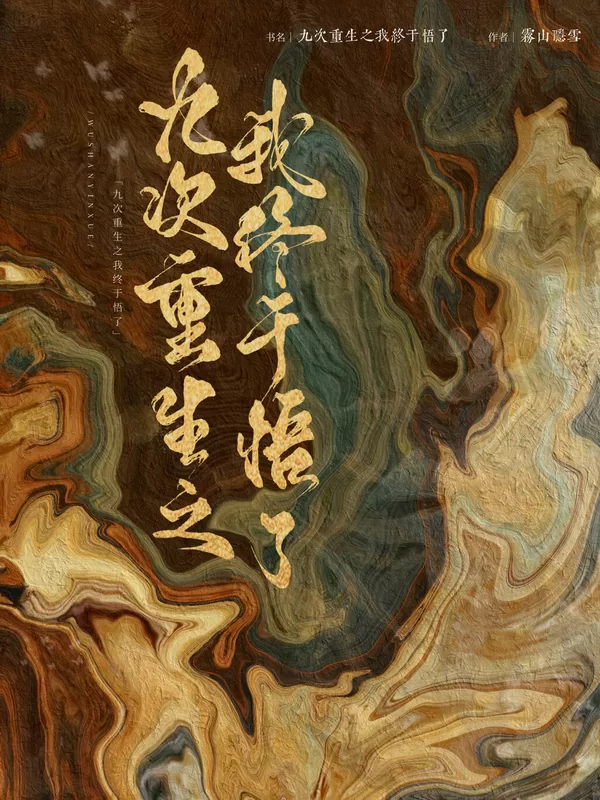 书名 | 九次重生之我终于悟了
作者 | 霧山隱雪
九次重生之
我终于悟了
WUSHANYINXUE
「九次重生之我终于悟了」